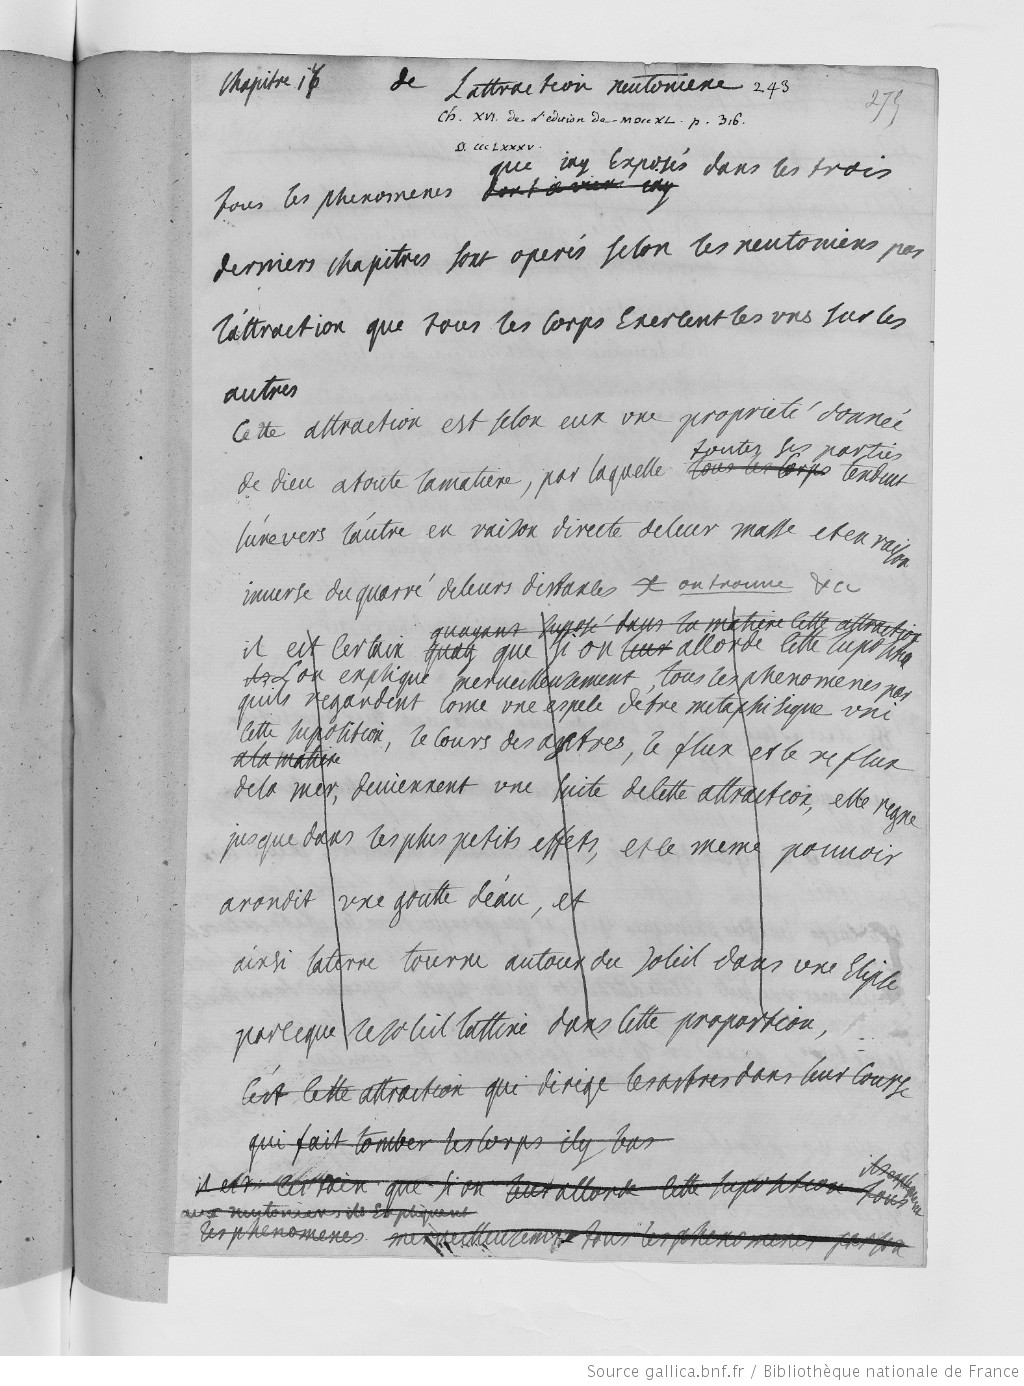 Chapitre 16 de Lattraction neutoniene 243
275
Ch. XVI. de l'édition de MDCCXL. p. 316.
D. CCCLXXXV.
que iay Exposés dans les trois
tous les phenomenes dont ie viens iay
derniers chapitres sont operés selon les neutoniens par
l'attraction que tous les corps Exercent les uns sur les
autres
Cette attraction est selon eux une proprieté donnée
toutes ses parties
de dieu atoute lamatiere, par laquelle tous les corps tendent
lune vers l'autre en raison directe deleur masse et en raison
inverse du quarré deleurs distances on trouve &c
quayant suposé dans la matiere cette attraction
il est certain quay que si on leur accorde cette suposition
ils Lon explique merveilleusement, tous les phenomenes par
quils regardent come une espece détre metaphisique uni
cette suposition, le cours des astres, le flux et le reflux
ala matiere
dela mer, deviennent une suite decette attraction, elle regne
jusque dans les plus petits effets, et ce meme pouvoir
arondit une goutte déau, et
ainsi laterre tourne autour du soleil dans une Elipse
parceque le soleil lattire dans cette proportion,
c'est cette attraction qui dirige les astres dans leur course
qui fait tomber les corps icy bas
il est certain que si on leur accorde cette suposition tous
aux neutoniens ils Expliquent
les phenomenes merveilleusement tous les phenomenes par son